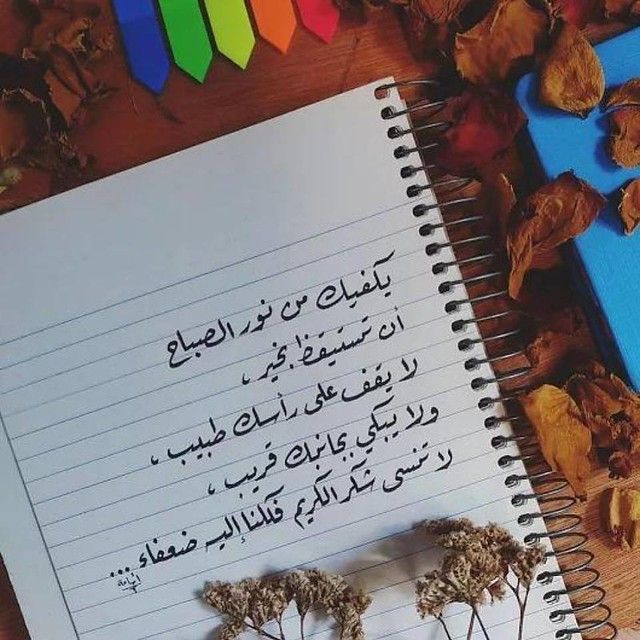 يكفيك من نور الصباح
أن تستيقظ بخير ،
لا يقف على رأسك طبيب ،
ولا يبكي بجانبك قريب ،
لا تنسى شكر الكريم فكلنا إليه ضعفاء ...